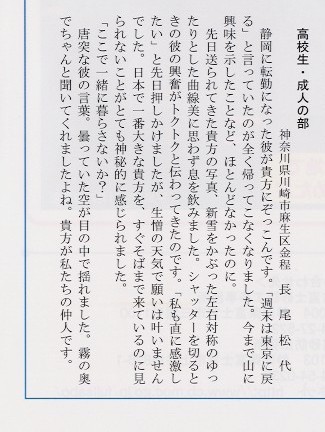 高校生・成人の部
神奈川県川崎市麻生区金程　長尾松代
静岡に転勤になった彼が貴方にぞっこんです。「週末は東京に戻
る」と言っていたのが全く帰ってこなくなりました。今まで山に
興味を示したことなど、ほとんどなかったのに。
先日送られてきた貴方の写真、新雪をかぶった左右対称のゆっ
たりとした曲線美に思わず息を飲みました。シャッターを切ると
きの彼の興奮がトクトクと伝わってきたのです。「私も直に感激し
たい」と先日押しかけましたが、生憎の天気で願いは叶いません
でした。日本で一番大きな貴方を、すぐそばまで来ているのに見
られないことがとても神秘的に感じられました。
「ここで一緒に暮らさないか?」
唐突な彼の言葉。曇っていた空が目の中で揺れました。霧の奥
でちゃんと聞いてくれましたよね。貴方が私たちの仲人です。